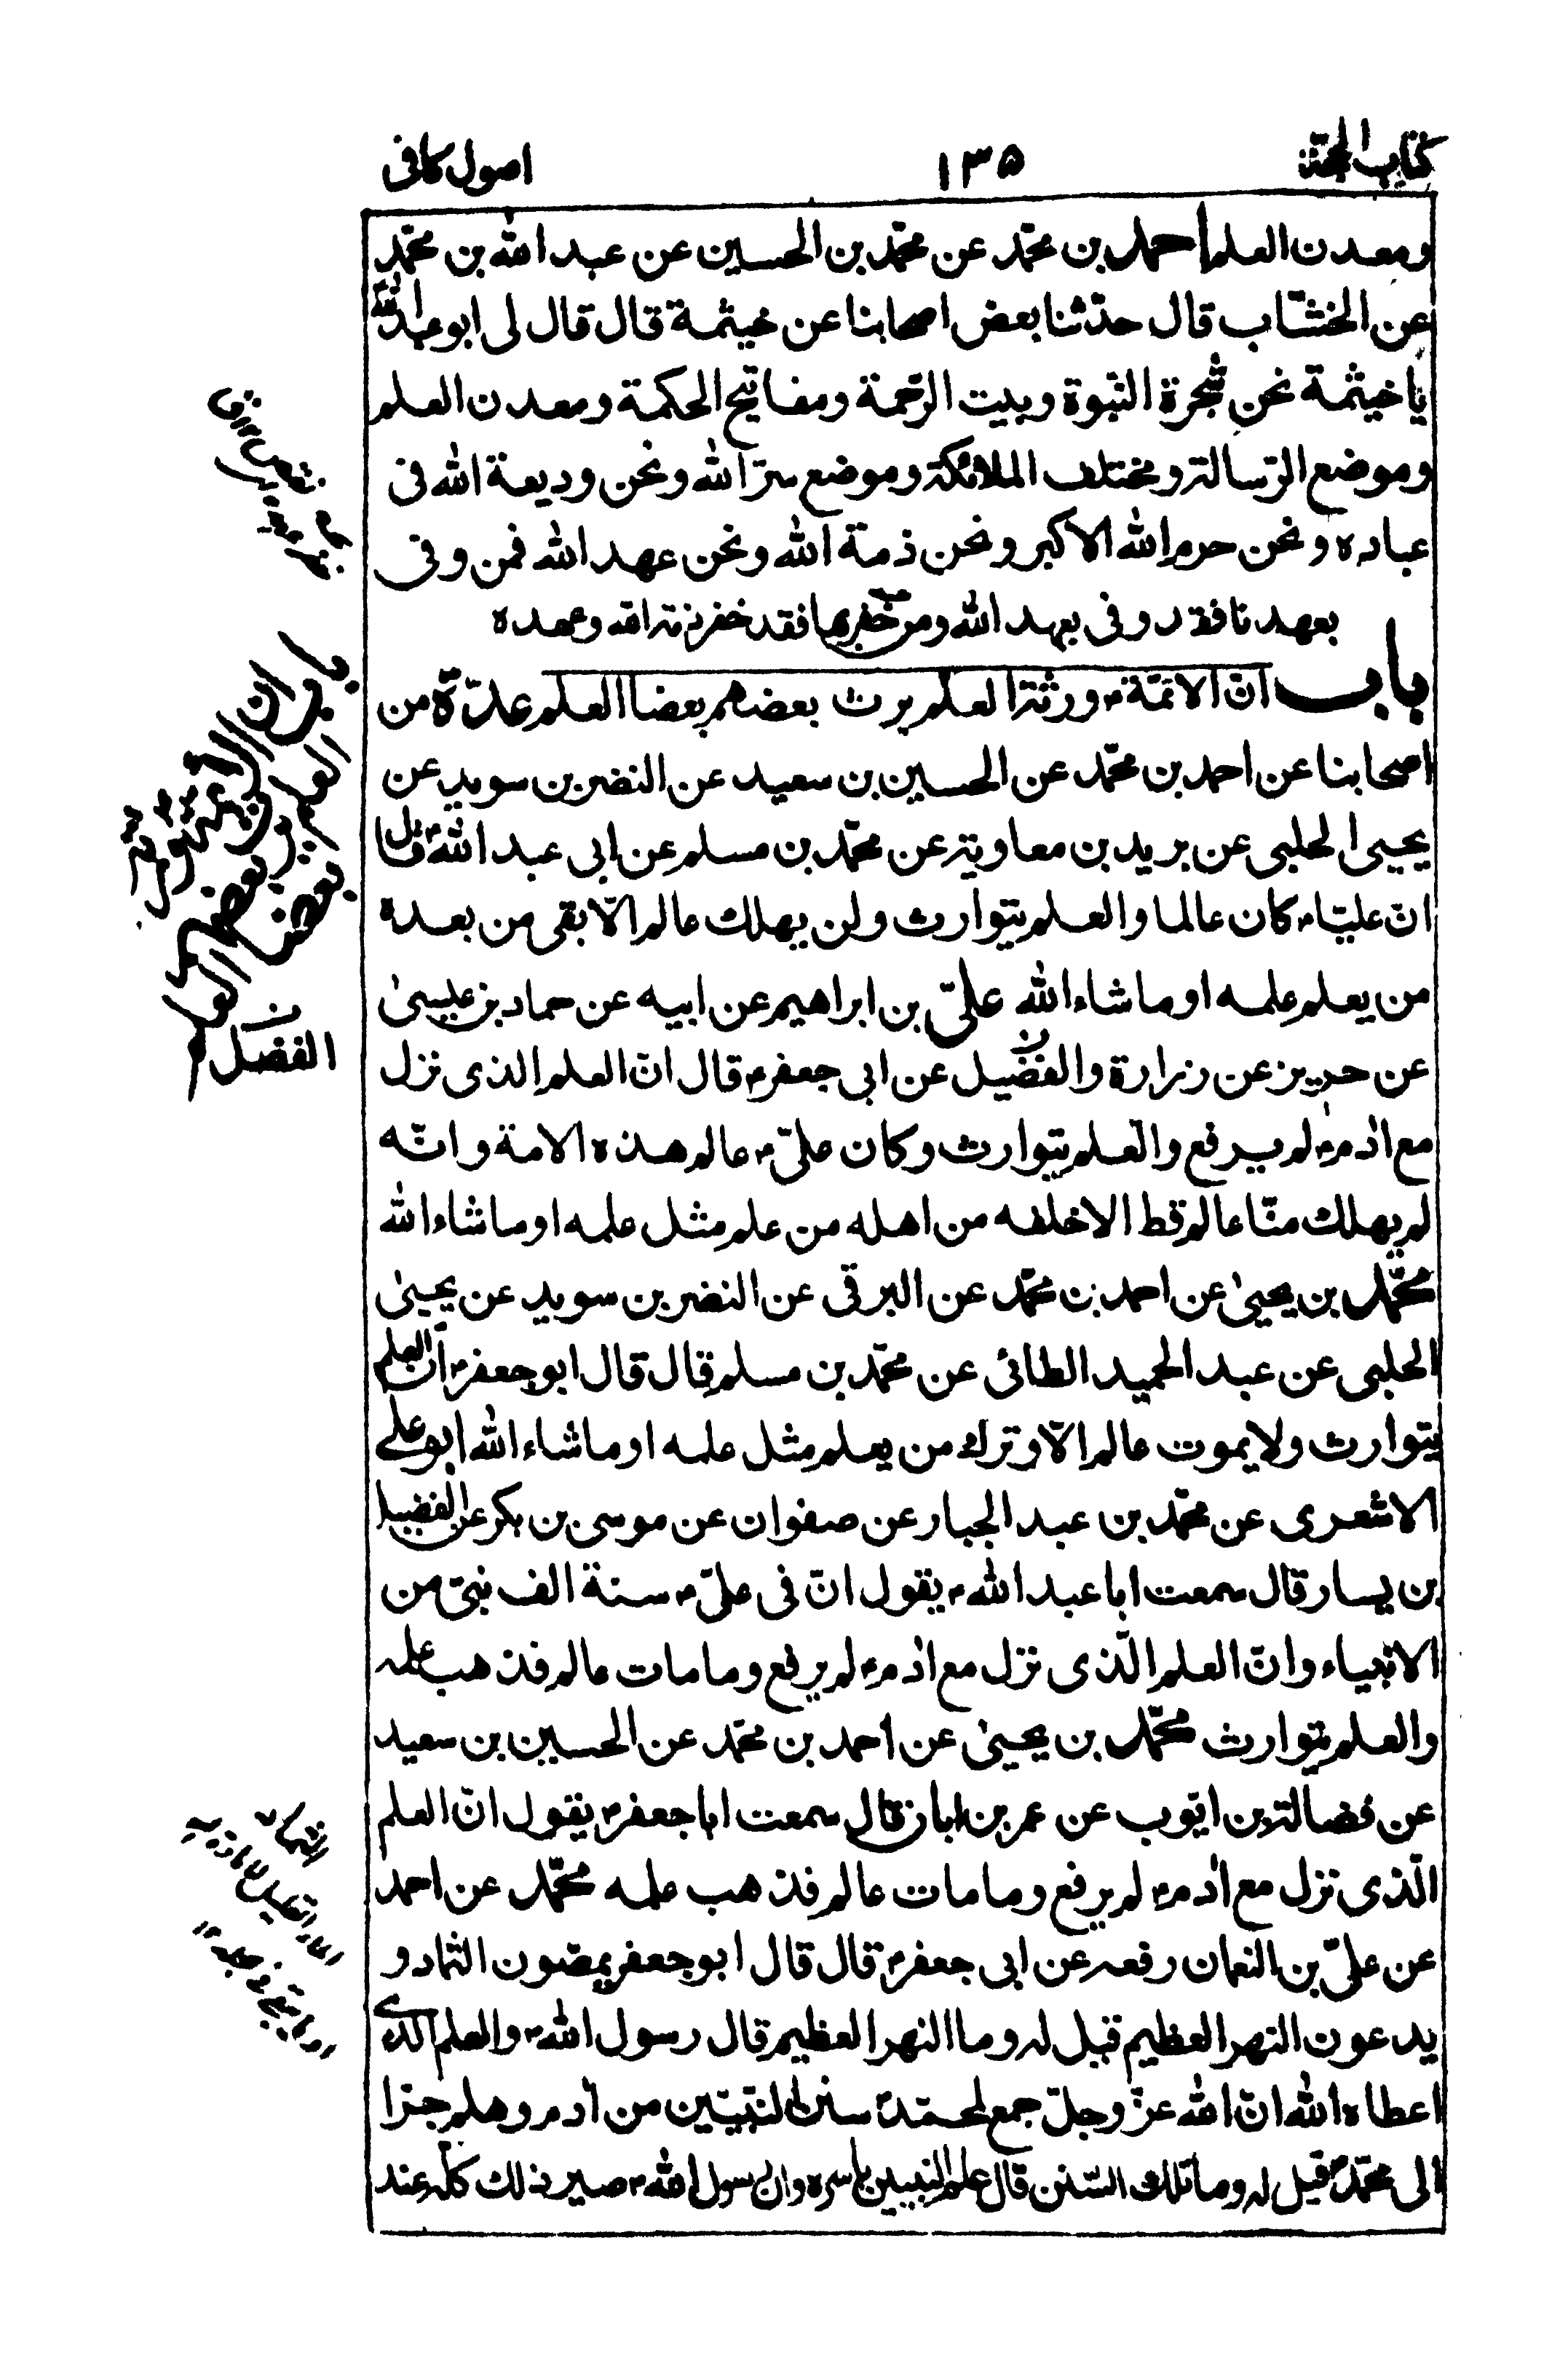 كتاب الحجة ١٣٥ اصول كافى
ومعدن العلم احمد بن محمّد عن محمّد بن الحسين عن عبد الله بن محمّد
عن الخشّاب قال حدّثنا بعض اصحابنا عن خيثمة قال قال لى ابو عبد الله
يا خيثمة نحن شجرة النّبوة وبيت الرّحمة ومفاتيح الحكمة ومعدن العلم
وموضع الرّسالة ومختلف الملائكة وموضع سرّ الله ونحن وديعة الله فى
عباده ونحن حرم الله الاكبر ونحن ذمة الله ونحن عهد الله فمن وفى
بعهدنا فقد وفى بعهد الله ومن خفرها فقد خفر ذمة الله وعهده
باب انّ الائمّة ورثة العلم يرث بعضهم بعضا العلم عدّة من
اصحابنا عن احمد بن محمّد عن الحسين بن سعيد عن النضر بن سويد عن
يحيى الحلبى عن بريد بن معاوية عن محمّد بن مسلم عن ابى عبد الله قال
انّ عليّا كان عالما والعلم يتوارث ولن يهلك عالم الّا بقى من بعده
من يعلم علمه او ما شاء الله علىّ بن ابراهيم عن ابيه عن حماد بن عيسىٰ
عن حريز عن زرارة والفضيل عن ابى جعفر قال انّ العلم الذى نزل
مع اٰدم لم يرفع والعلم يتوارث وكان علىّ عالم هذه الامة وانّه
لم يهلك منّا عالم قط الا خلفه من اهله من علم مثل علمه او ما شاء الله
محمّد بن يحيىٰ عن احمد بن محمّد عن البرقى عن النضر بن سويد عن يحيىٰ
الحلبى عن عبد الحميد الطائى عن محمّد بن مسلم قال قال ابو جعفر انّ العلم
يتوارث ولا يموت عالم الّا وترك من يعلم مثل علمه او ما شاء الله ابو على
الاشعرى عن محمّد بن عبد الجبار عن صفوان عن موسى بن بكر عن الفضيل
بن يسار قال سمعت ابا عبد الله يقول انّ فى علىّ سنة الف نبىّ من
الانبياء وانّ العلم الّذى نزل مع اٰدم لم يرفع وما مات عالم فذهب علمه
والعلم يتوارث محمّد بن يحيىٰ عن احمد بن محمّد عن الحسين بن سعيد
عن فضالة بن ايّوب عن عمر بن ابان قال سمعت ابا جعفر يقول انّ العلم
الّذى نزل مع اٰدم لم يرفع وما مات عالم فذهب علمه محمّد عن احمد
عن علىّ بن النعمان رفعه عن ابى جعفر قال قال ابو جعفر يمصّون الثماد و
يدعون النهر العظيم قيل له وما النهر العظيم قال رسول الله والعلم الّذى
اعطاه الله انّ الله عزّ وجلّ جمع لمحمّد سنن النّبيّين من اٰدم وهلم جرّا
الى محمّد قيل له وما تلك السّنن قال علم النبيين باسره وان رسول الله صير ذلك كله عند
باب ان الائمة ورثة
العلم يرث بعضهم
بعضا العلم
الفضل